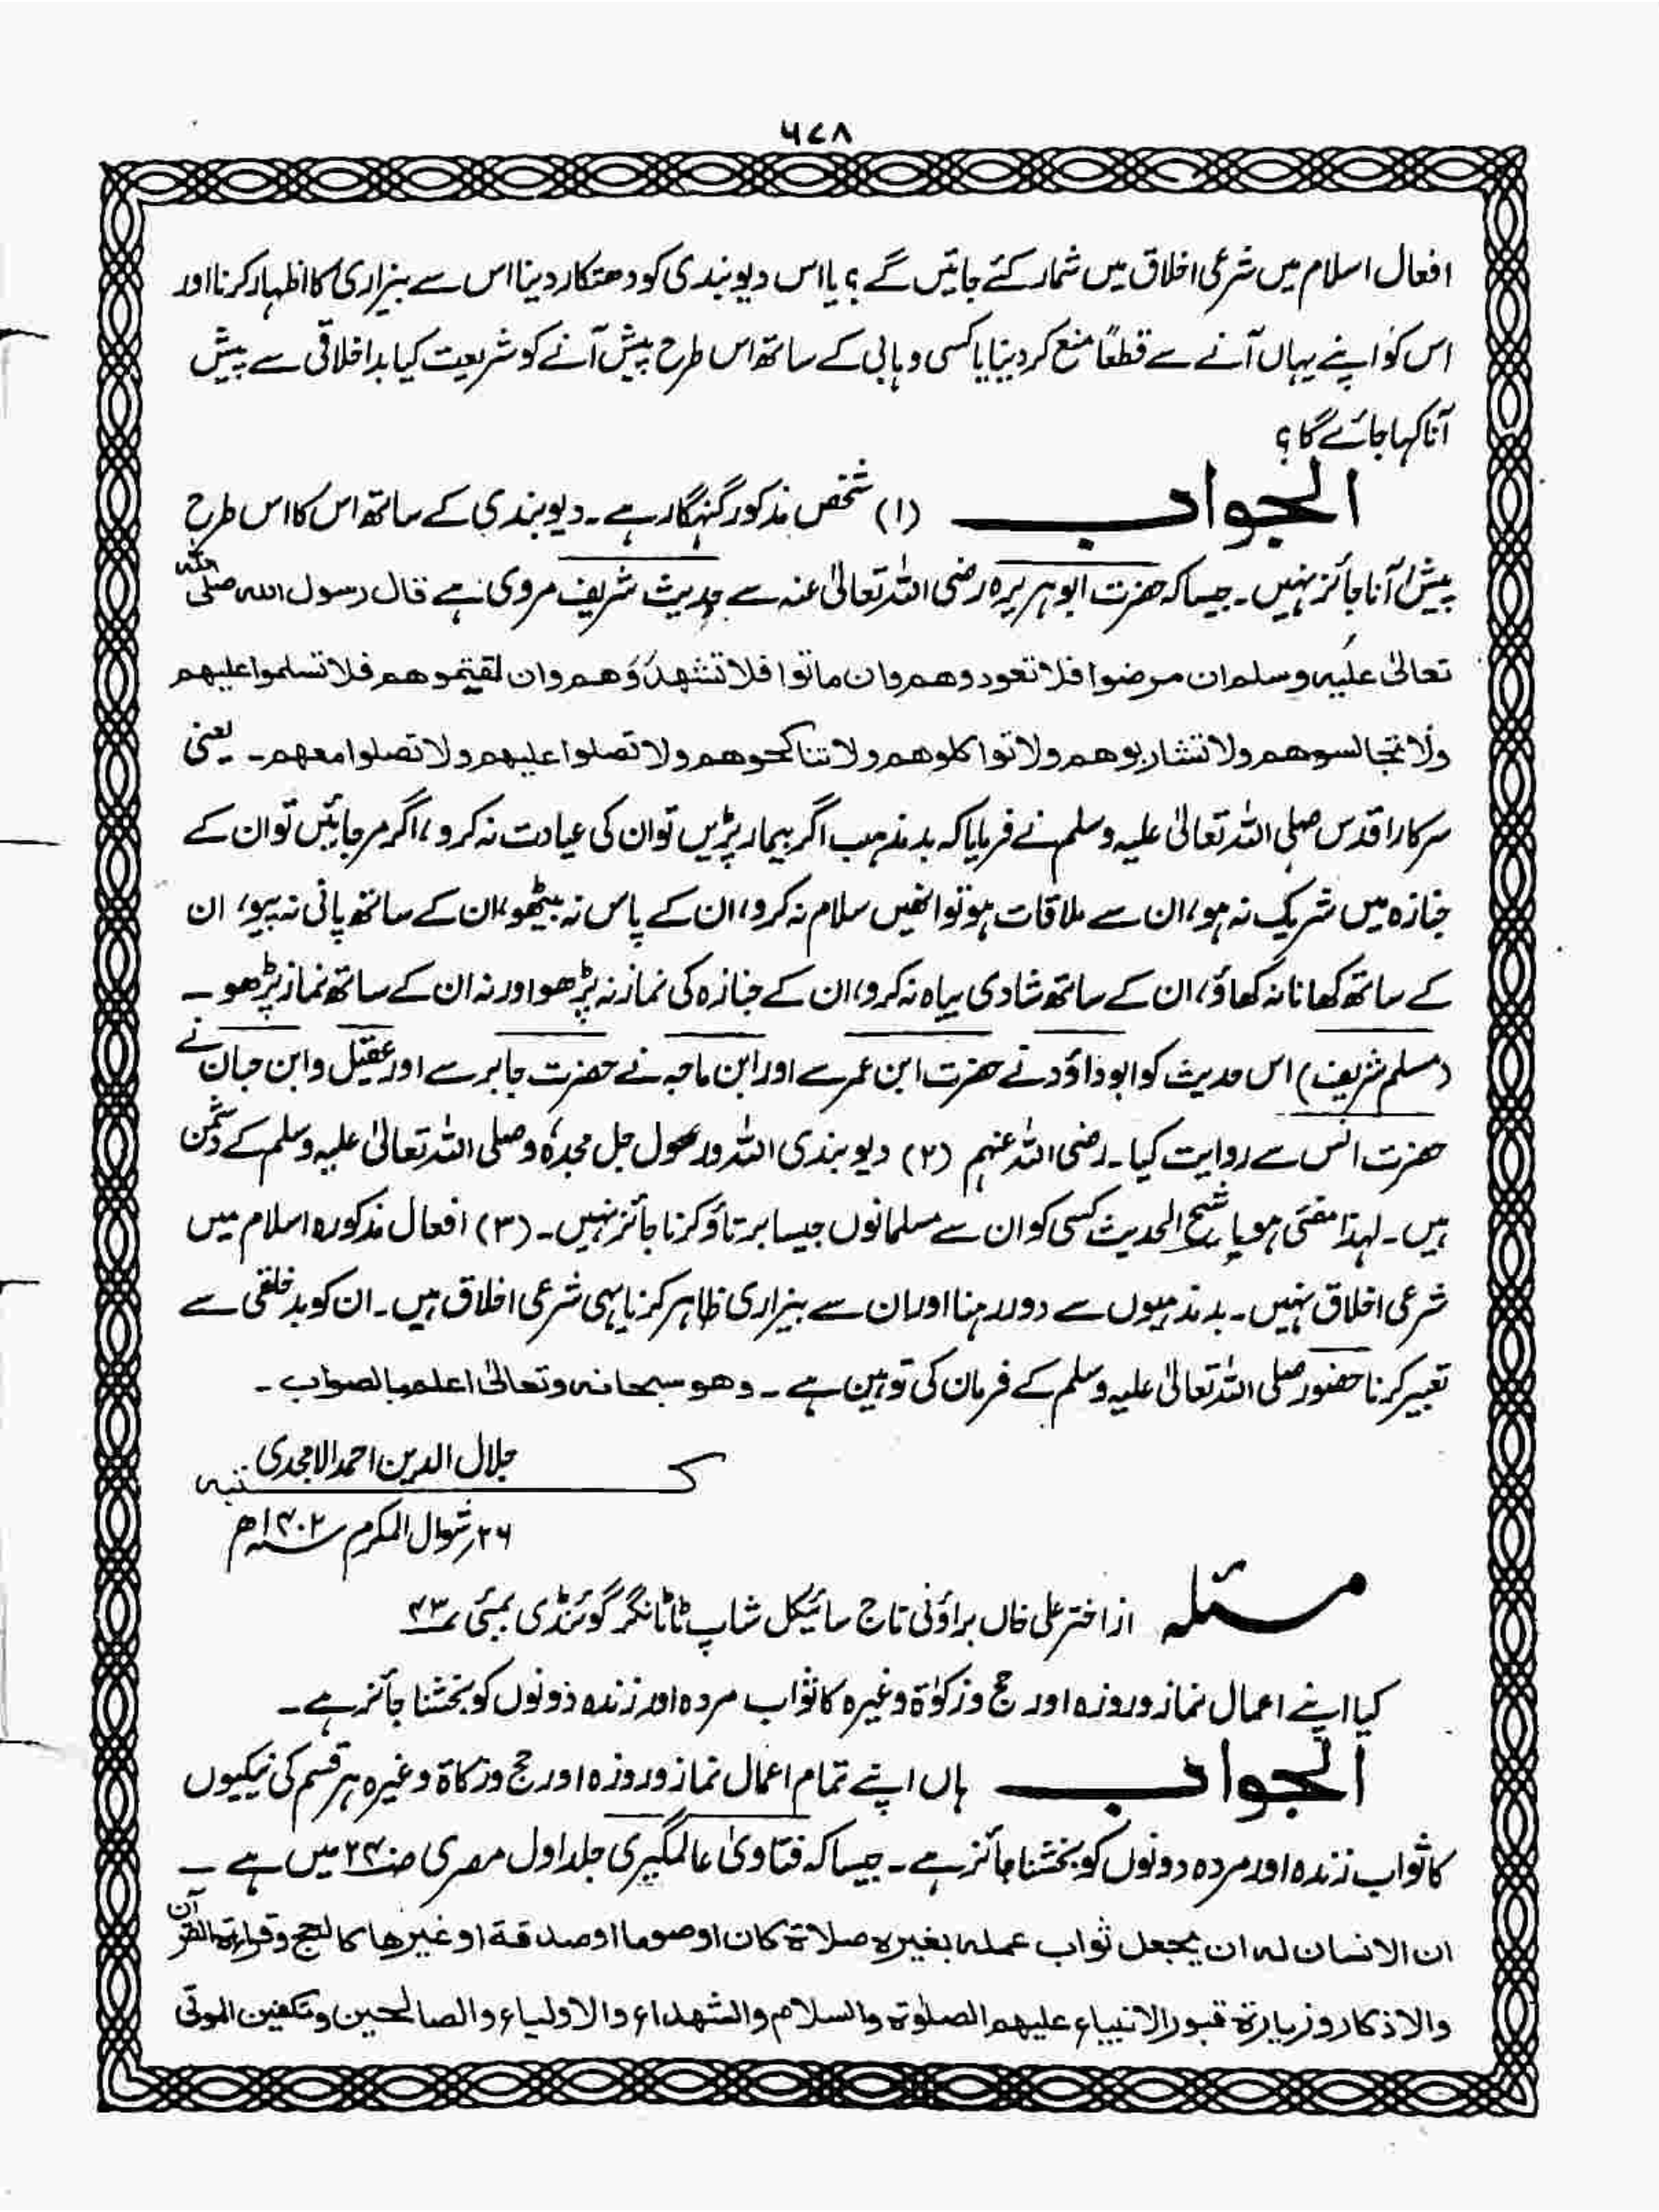 ۶۷۸
افعال اسلام میں شرعی اخلاق میں شمار کئے جائیں گے ؟ یا اس دیوبندی کو دھتکار دینا اس سے بیزاری کا اظہار کرنا اور
اس کو اپنے یہاں آنے سے قطعاً منع کر دینا یا کسی وہابی کے ساتھ اس طرح پیش آنے کو شریعت کیا بداخلاقی سے پیش
آنا کہا جائے گا ؟
الجواب (۱) شخص مذکور گنہگار ہے ۔ دیوبندی کے ساتھ اس کا اس طرح
پیش آنا جائز نہیں ۔ جیسا کہ حضرت ابوہریرہ رضی اللہ تعالیٰ عنہ سے حدیث شریف مروی ہے قال رسول اللہ صلی اللہ
تعالیٰ علیہ وسلم ان مرضوا فلا تعودوهم وان ماتوا فلا تشهدوهم وان لقيتموهم فلا تسلموا عليهم
ولا تجالسوهم ولا تشاربوهم ولا تواكلوهم ولا تناكحوهم ولا تصلوا عليهم ولا تصلوا معهم ۔ یعنی
سرکار اقدس صلی اللہ تعالیٰ علیہ وسلم نے فرمایا کہ بدمذہب اگر بیمار پڑیں تو ان کی عیادت نہ کرو ، اگر مر جائیں تو ان کے
جنازہ میں شریک نہ ہو ، ان سے ملاقات ہو تو انھیں سلام نہ کرو ، ان کے پاس نہ بیٹھو ، ان کے ساتھ پانی نہ پیو ، ان
کے ساتھ کھانا نہ کھاؤ ، ان کے ساتھ شادی بیاہ نہ کرو ، ان کے جنازہ کی نماز نہ پڑھو اور نہ ان کے ساتھ نماز پڑھو ۔
(مسلم شریف) اس حدیث کو ابوداؤد نے حضرت ابن عمر سے اور ابن ماجہ نے حضرت جابر سے اور عقیل و ابن حبان نے
حضرت انس سے روایت کیا ۔ رضی اللہ عنہم (۲) دیوبندی اللہ و رسول جل مجدہٗ و صلی اللہ تعالیٰ علیہ وسلم کے دشمن
ہیں ۔ لہذا مفتی ہو یا شیخ الحدیث کسی کو ان سے مسلمانوں جیسا برتاؤ کرنا جائز نہیں ۔ (۳) افعال مذکورہ اسلام میں
شرعی اخلاق نہیں ۔ بدمذہبوں سے دور رہنا اور ان سے بیزاری ظاہر کرنا یہی شرعی اخلاق ہیں ۔ ان کو بدخلقی سے
تعبیر کرنا حضور صلی اللہ تعالیٰ علیہ وسلم کے فرمان کی توہین ہے ۔ وھو سبحانہ وتعالیٰ اعلم بالصواب ۔
کتبہ جلال الدین احمد الامجدی
۲۶ شوال المکرم ۱۴۰۲ھ
مسئلہ از اختر علی خاں براؤنی تاج سائیکل شاپ ٹاٹا نگر گوئنڈی بمبئی ۴۳
کیا اپنے اعمال نماز و روزہ اور حج و زکوٰۃ وغیرہ کا ثواب مردہ اور زندہ دونوں کو بخشنا جائز ہے ۔
الجواب ہاں اپنے تمام اعمال نماز و روزہ اور حج و زکاۃ وغیرہ ہر قسم کی نیکیوں
کا ثواب زندہ اور مردہ دونوں کو بخشنا جائز ہے ۔ جیسا کہ فتاویٰ عالمگیری جلد اول مصری میں ہے ۔
ان الانسان لہ ان یجعل ثواب عملہ بغیرہ صلاۃ کان او صوما او صدقۃ او غیرھا کالحج وقراءۃ القرآن
والاذکار وزیارۃ قبور الانبیاء علیھم الصلوٰۃ والسلام والشھداء والاولیاء والصالحین وتکفین الموتی